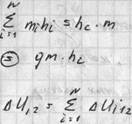 N
∑ mᵢhᵢ = h_c · m
i=1
⊜ gm · h_c
ΔU₁₂ = ∑ᵢ₌₁ᴺ ΔUᵢ₁₂